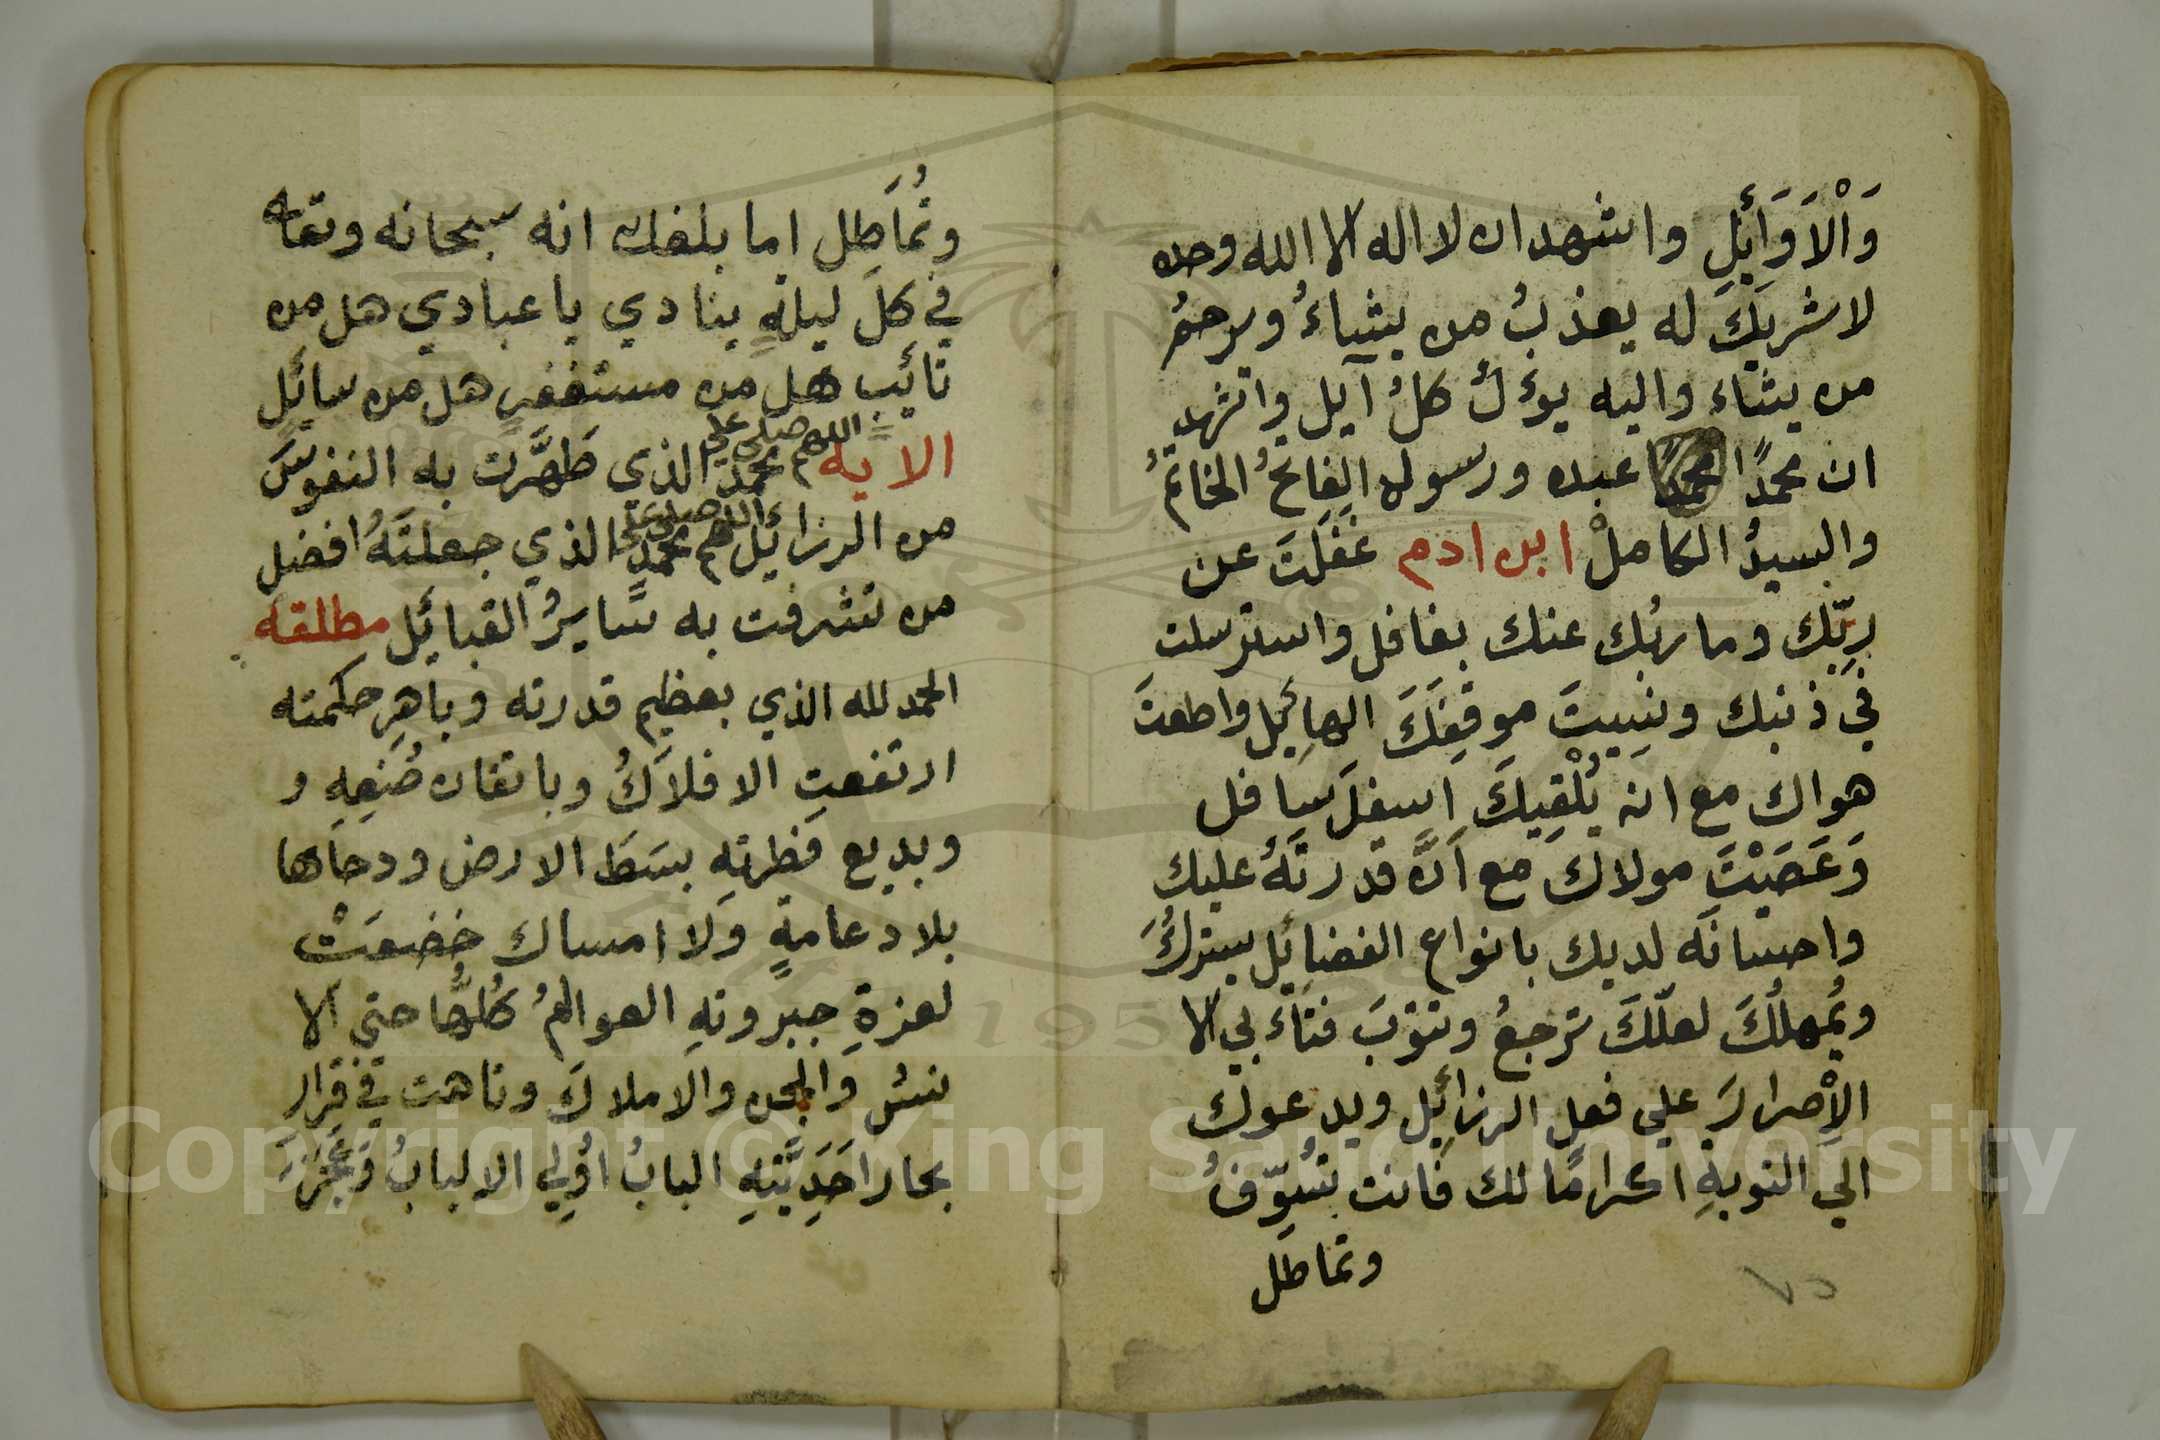 وَالْاَوَائِلِ واشهد ان لا اله الا الله وحده
لا شريكَ له يعذبُ من يشاءُ ويرحمُ
من يشاء واليه يؤلُ كلُ آيل واشهد
ان محمدًا عبده ورسوله الفاتحُ الخاتمُ
والسيدُ الكاملْ ابن ادم غفلتَ عن
ربِّك وما ربُك عنك بغافل واسترسلت
في ذنبك ونسيتَ موقِفَكَ الهايَل واطعتَ
هواك مع انه يُلْقِيكَ اسفلَ سافل
وَعَصَيْتَ مولاك مع اَنَّ قدرتَهُ عليك
واحسانَه لديك بانواع الفضايَل يسترُكَ
ويُمهلُكَ لعلّكَ ترجعُ وتتوبَ فتاءَبي الا
الاِصرارَ علي فعل الرزائَل ويدعوك
الي التوبةِ اكرامًا لك فانت تسُوِّفُ
وتماطل
وتُماَطِل اما بلغك انه سبحانه وتعا
في كلَ ليلةٍ ينادي يا عبادي هل من
تائَبٍ هل من مستغفرٍ هل من سايَلٍ
الايه اللهم صلي علي محمد الذي طَهَّرت به النفوسَ
من الرزائَل اللهم صلي علي محمدٍ الذي جعلتَهُ افضل
من تشرفت به سايرُ القبائَل مطلقه
الحمد لله الذي بعظيم قدرته وباهرِ حكمته
ارتفعتِ الافلاكُ وباتقان صُنعِهِ و
وبديع فطرتهِ بسَطَ الارض ودحاها
بلا دعامةٍ ولا امساك خضعَتْ
لعزةِ جبروتهِ العوالمُ كلُّها حتي الا
نسُ والجن والاملاكَ وتاهت في قرار
بحار احَدِيَّتهِ البابُ اؤلي الالبابُ وَعَجَزَ